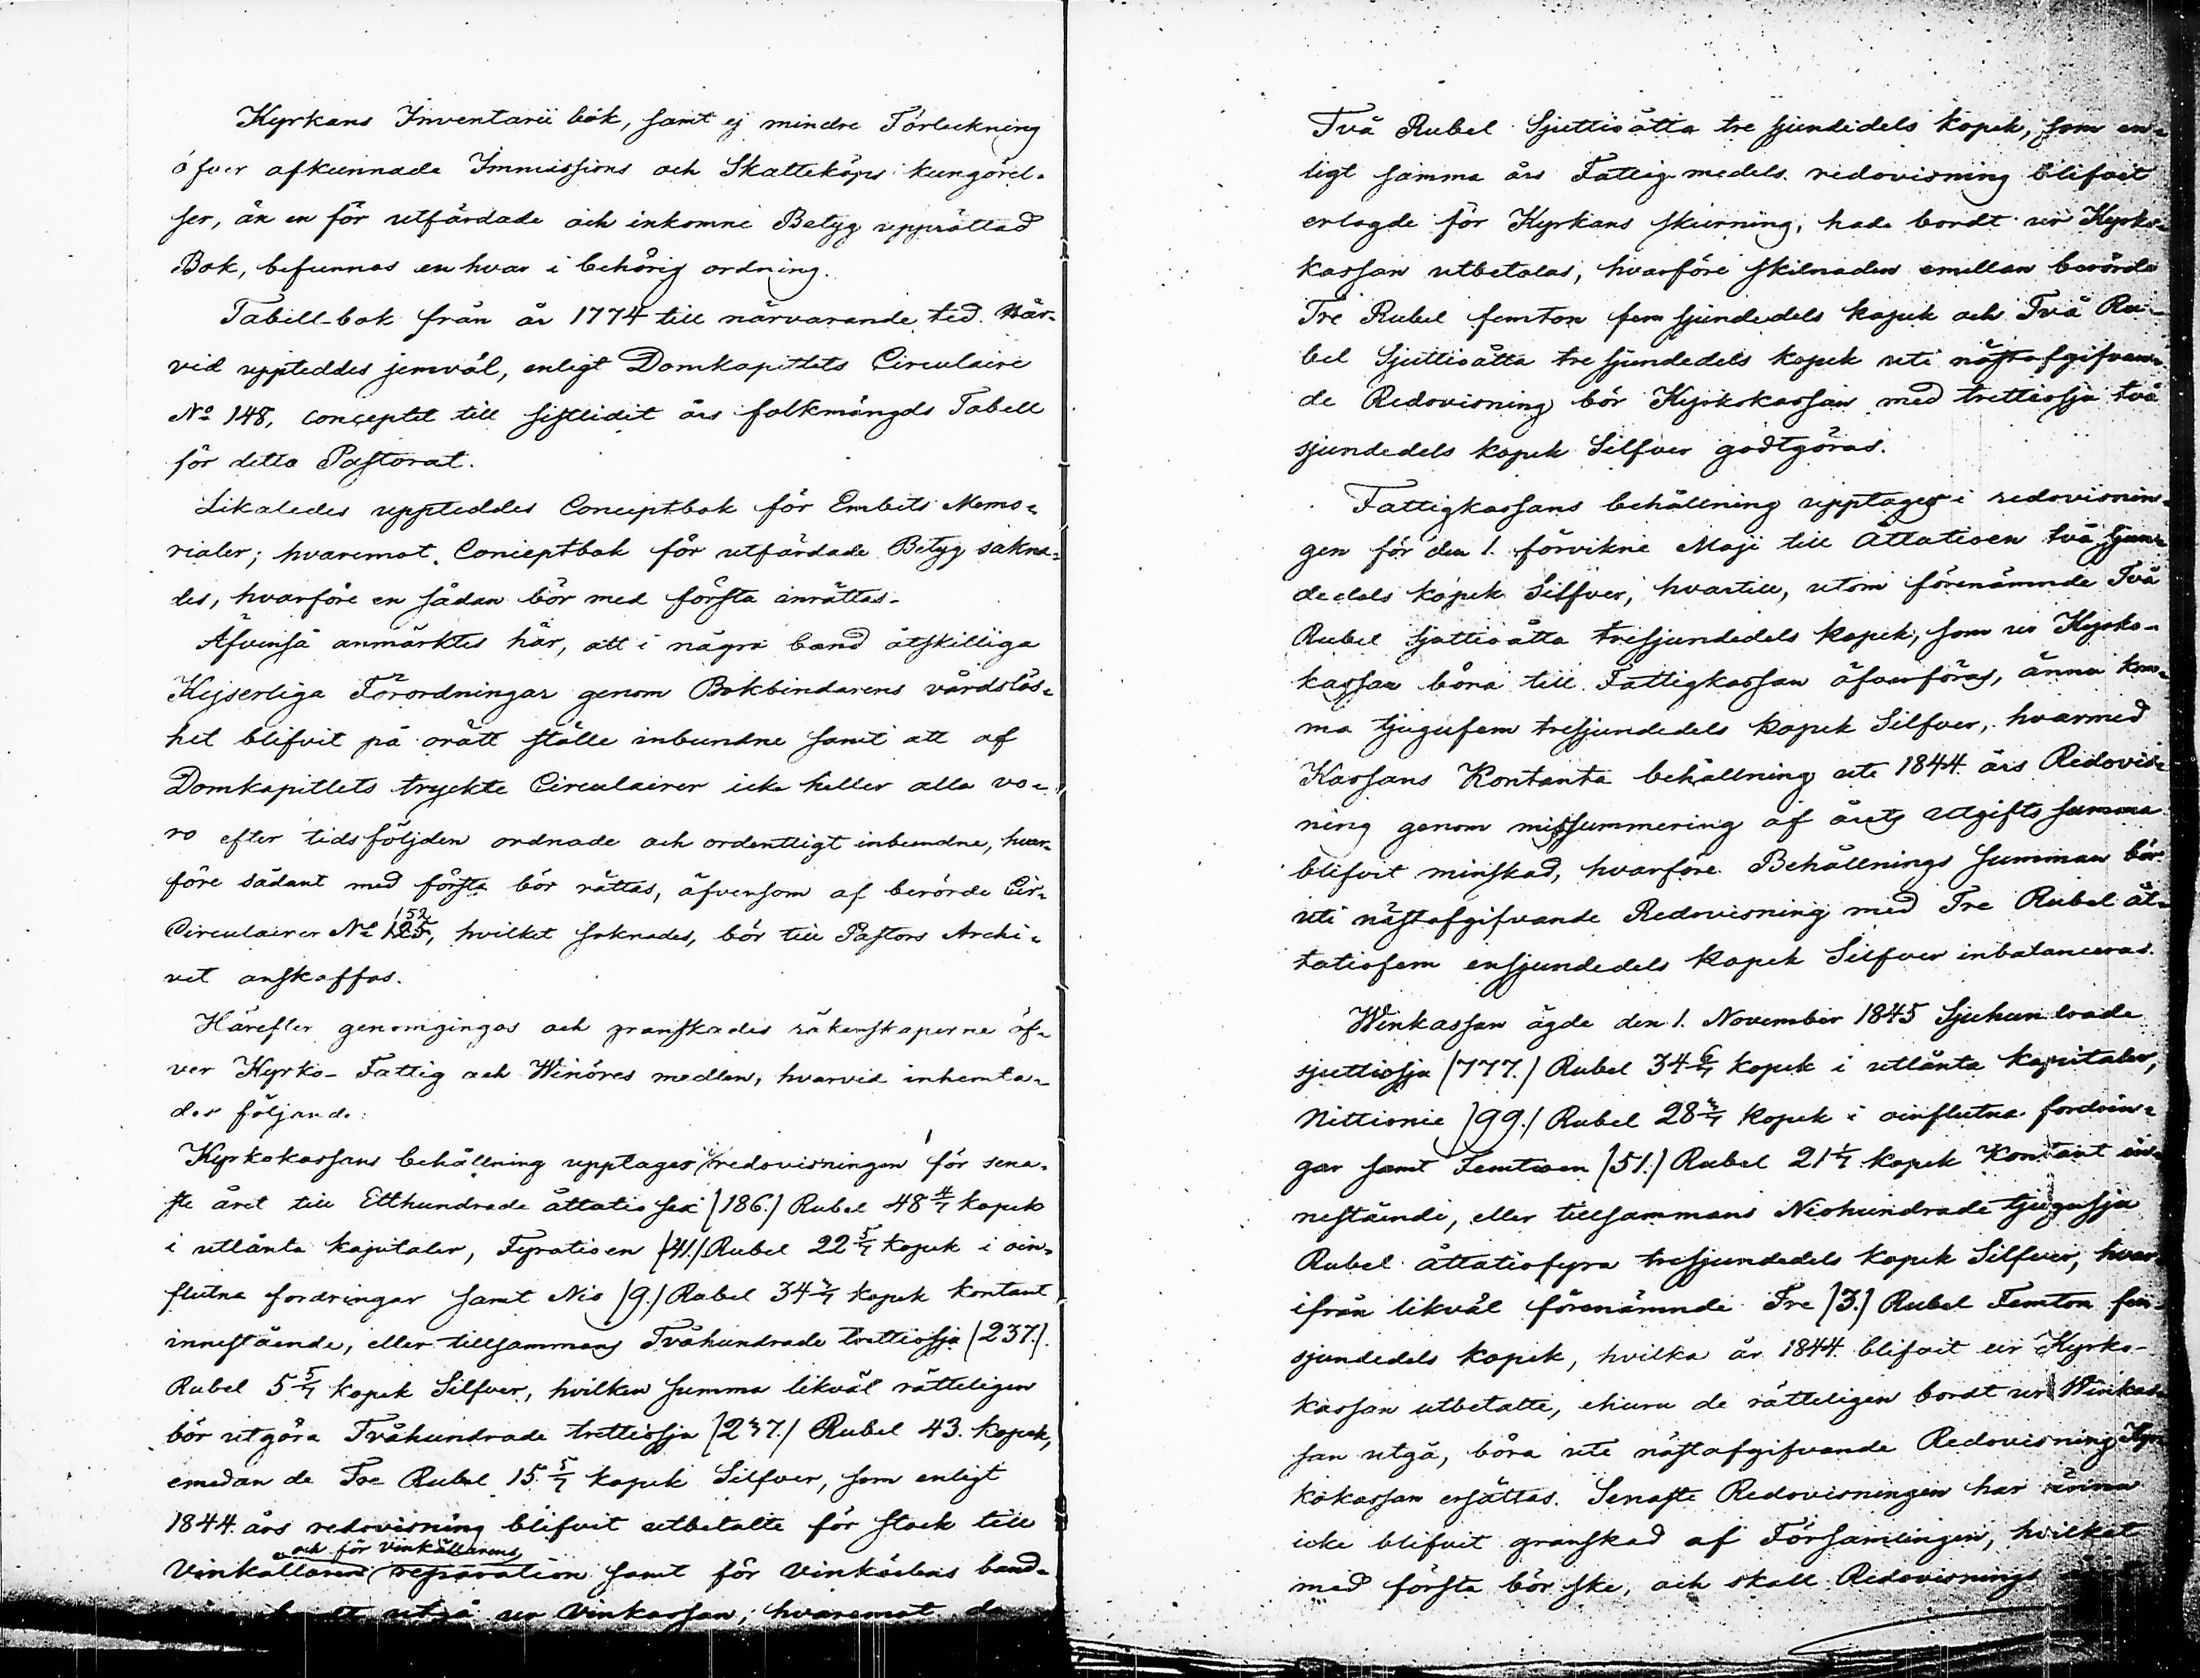 Kyrkans Inventarii bok, samt ej mindre Förteckning
öfver afkunnade Immissions och Skatteköps kungörel-
ser, än en för utfärdade och inkomne Betyg upprättad
Bok, befunnos en hvar i behörig ordning.
Tabell-bok från år 1774 till närvarande tid. Här-
vid uppteddes jemväl, enligt Domkapitlets Circulaire
No 148, conceptet till sistlidit års folkmängds Tabell
för detta Pastorat.
Likaledes uppteddes Conceptbok för Embets Memo-
rialer; hvaremot Conceptbok för utfärdade Betyg sakna-
des, hvarföre en sådan bör med första inrättas.
Äfvenså anmärktes här, att i några band åtskilliga
Kejserliga Förordningar genom Bokbindarens vårdslös-
het blifvit på orätt ställe inbundne samt att af
Domkapitlets tryckte Circulairer icke heller alla vo-
ro efter tidsföljden ordnade och ordentligt inbundne, hvar-
före sådant med första bör rättas, äfvensom af berörde Cir-
Circulairer No 152, hvilket saknades, bör till Pastors Archi-
vet anskaffas.
Härefter genomgingos och granskades räkenskaperne öf-
ver Kyrko- Fattig och Winöres medlen, hvarvid inhemta-
des följande:
Kyrkokassans behållning upptages i redovisningen för sena-
ste året till Etthundrade åttatio sex (186.) Rubel 48 4/7 kopek
i utlånta kapitaler, Fyratioen (41.) Rubel 22 5/7 kopek i oin-
flutna fordringar samt Nio (9.) Rubel 34 3/7 kopek kontant
innestående, eller tillsammans Tvåhundrade trettiosju (237.)
Rubel 5 5/7 kopek Silfver, hvilken summa likväl rätteligen
bör utgöra Tvåhundrade trettiosju (237.) Rubel 43. kopek,
emedan de Tre Rubel 15 5/7 kopek Silfver, som enligt
1844 års redovisning blifvit utbetalte för stock till
och för vinkällarens
Vinkällaren reparation samt för vinkärlens band-
utgå ur Vinkassan, hvaremot de
Två Rubel Sjuttioåtta tre sjundedels kopek, som en-
ligt samma års Fattigmedels redovisning blifvit
erlagde för Kyrkans skurning, hade bordt ur Kyrko-
kassan utbetalas, hvarföre skilnaden emellan berörde
Tre Rubel femton fem sjundedels kopek och Två Ru-
bel Sjuttioåtta tre sjundedels kopek uti nästafgifvan-
de Redovisning bör Kyrkokassan med trettiosju två
sjundedels kopek Silfver godtgöras.
Fattigkassans behållning upptages i redovisnin-
gen för den 1. förvikne Maji till Åttatioen två sjun-
dedels kopek Silfver, hvartill, utom förenämnde Två
Rubel sjuttioåtta tresjundedels kopek, som ur Kyrko-
kassan böra till Fattigkassan öfverföras, ännu kom-
ma tjugufem tresjundedels kopek Silfver, hvarmed
Kassans Kontanta behållning uti 1844 års Redovis-
ning genom missummering af årets Utgifts summa
blifvit minskad, hvarföre Behållnings summan bör
uti nästafgifvande Redovisning med Tre Rubel åt-
tatiofem ensjundedels kopek Silfver inbalanceras.
Winkassan ägde den 1. November 1845 Sjuhundrade
sjuttiosju (777.) Rubel 34 6/7 kopek i utlånta kapitaler,
Nittionie (99.) Rubel 28 3/7 kopek i oinflutna fordrin-
gar samt Femtioen (51.) Rubel 21 1/7 kopek Kontant in-
nestående, eller tillsammans Niohundrade tjugusju
Rubel åttatiofyra tresjundedels kopek Silfver, hvar-
ifrån likväl förenämnde Tre (3.) Rubel Femton fem-
sjundedels kopek, hvilka år 1844 blifvit ur Kyrko-
kassan utbetalte, ehuru de rätteligen bordt ur Winkas-
san utgå, böra uti nästafgifvande Redovisning Kyr-
kokassan ersättas. Senaste Redovisningen har ännu
icke blifvit granskad af Församlingen, hvilket
med första bör ske, och skall Redovisnings